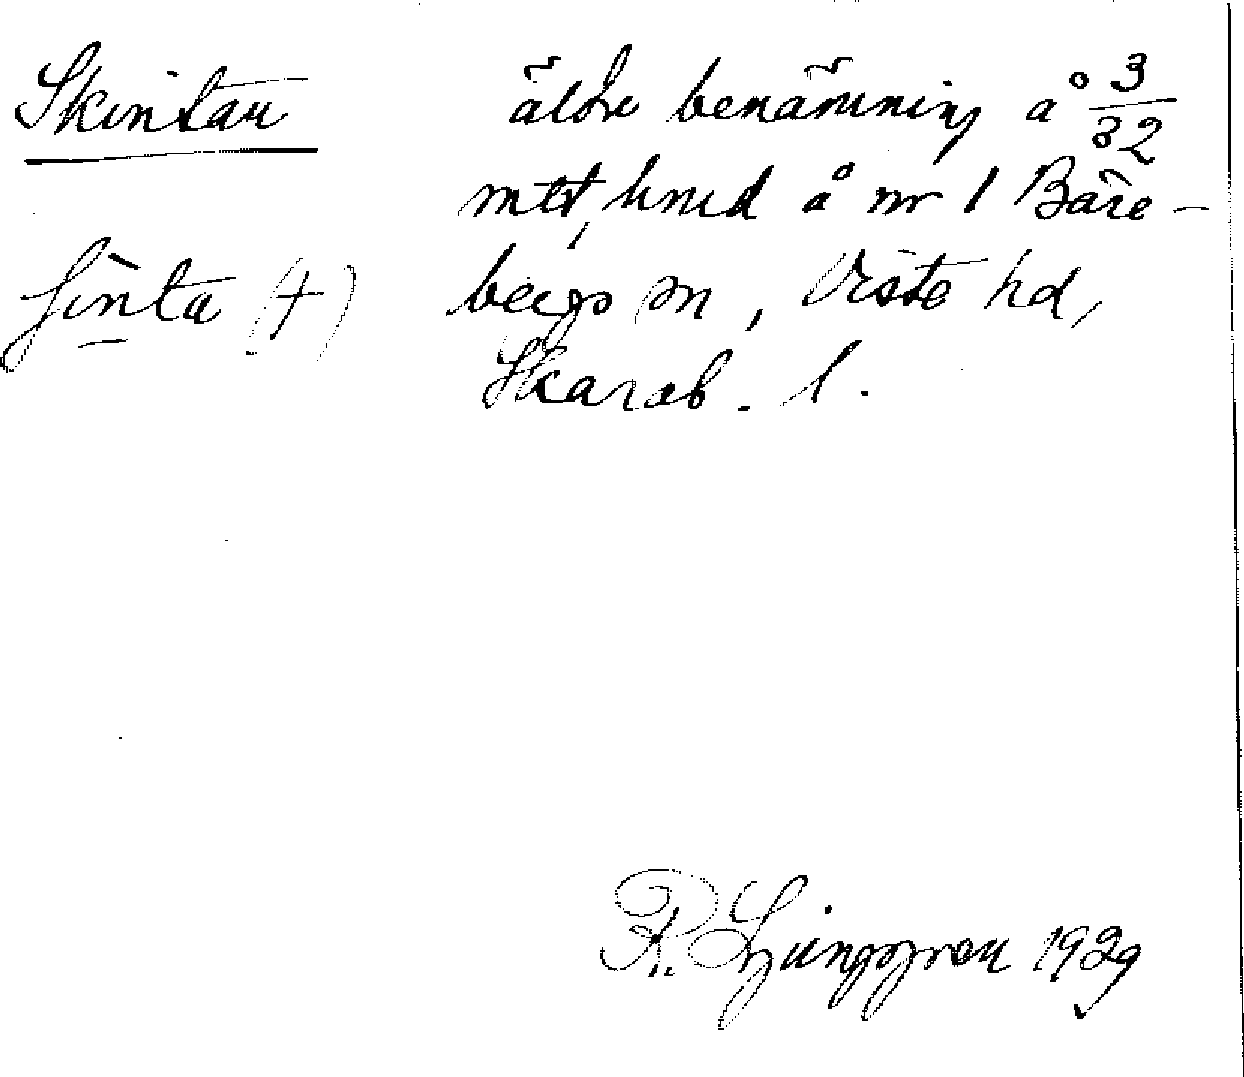 Skintan
äldre benämning å 3/32
mtl, hmd å nr 1 Bäre-
ʃìnta (4)
bergs sn, Viste hd,
Skarab. l.
R. Ljunggren 1929